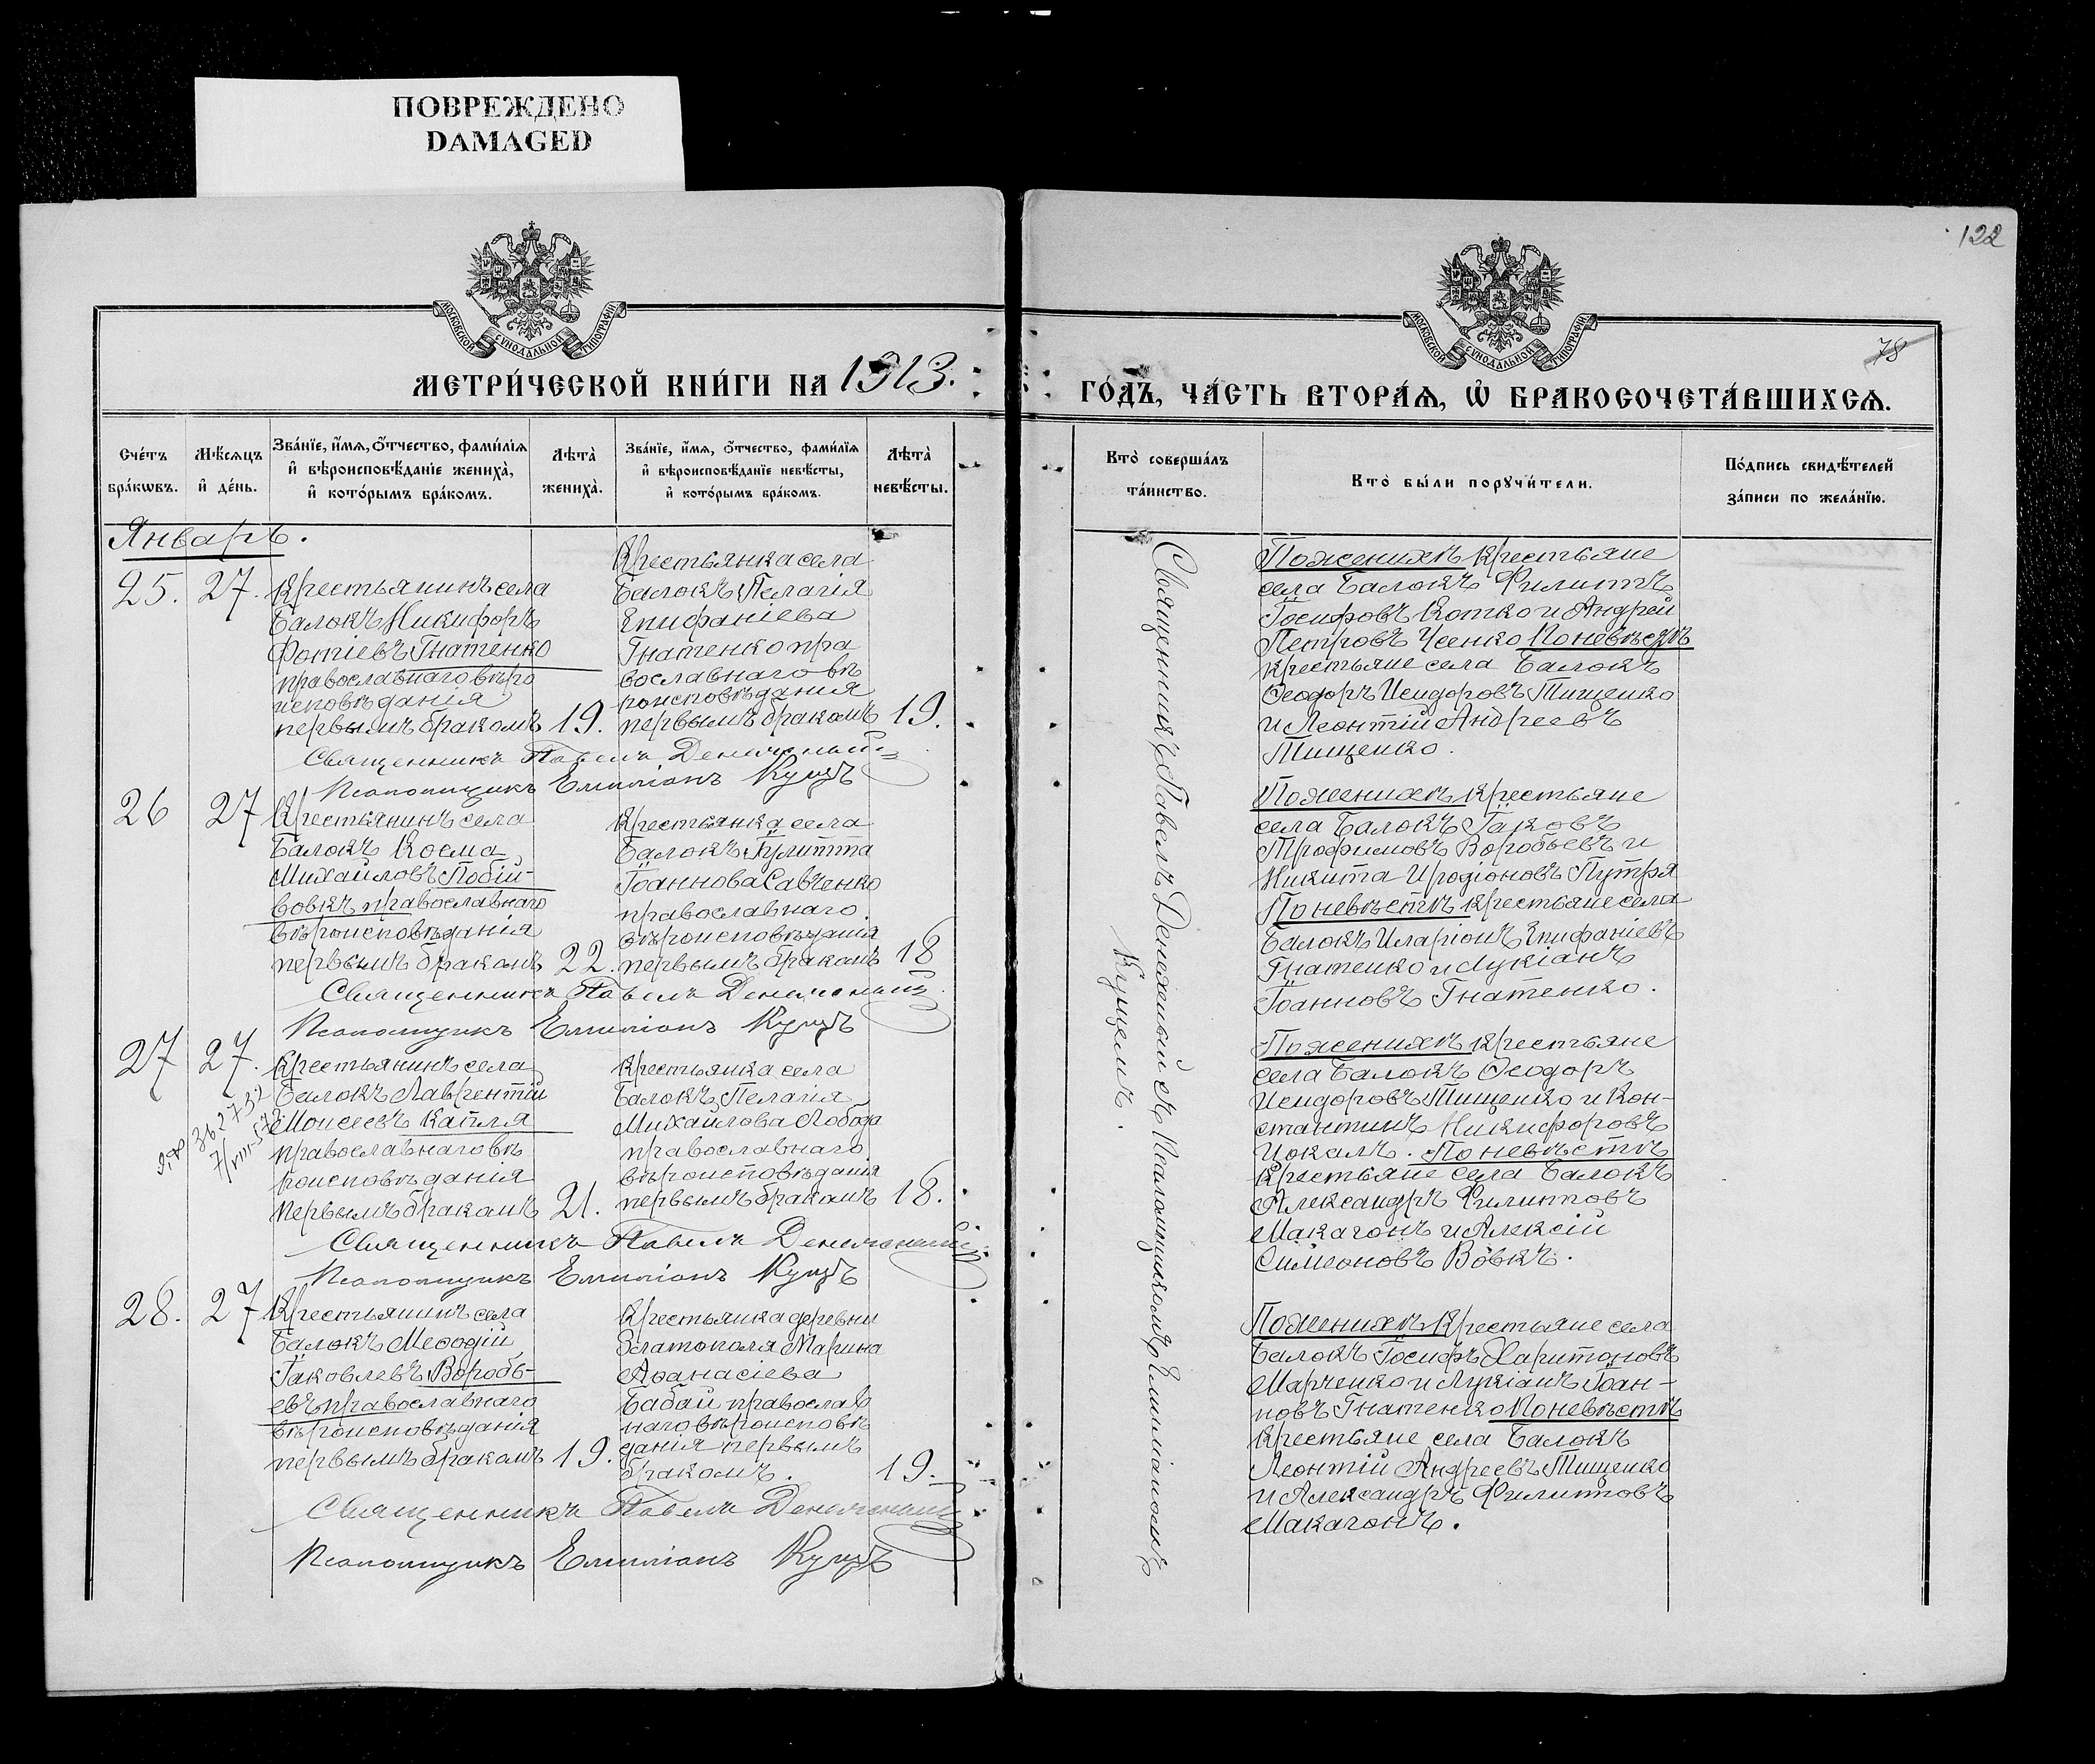 ПОВРЕЖДЕНО
DAMAGED
122
78
МОСКОВСКОЙ СѴНОДАЛЬНОЙ ТИПОГРАФІИ
МЕТРИ́ЧЕСКОЙ КНИ́ГИ НА 1913.
Сче́тъ
бра́кѡвъ.
Мѣ́сяцъ
и҆ де́нь.
Зва́нїе, и҆́мѧ, ѻ҆́тчество, фами́лїѧ
и҆ вѣроисповѣ́данїе жениха̀,
и҆ кото́рымъ бра́комъ.
Лѣта̀
жениха̀.
Зва́нїе, и҆́мѧ, ѻ҆́тчество, фами́лїѧ
и҆ вѣроисповѣ́данїе невѣ́сты,
и҆ кото́рымъ бра́комъ.
Лѣта̀
невѣ́сты.
Январь.
25.
27.
Крестьянинъ села
Балокъ Никифоръ
Фотіевъ Гнатенко
православнаго вѣро
исповѣданія
первымъ бракомъ
19.
Крестьянка села
Балокъ Пелагія
Епифаніева
Гнатенко пра
вославнаго вѣ
роисповѣданія
первымъ бракомъ
19.
Священникъ Павелъ
Псаломщикъ Емиліанъ Куцъ
26
27
Крестьянинъ села
Балокъ Косма
Михайловъ Побій-
вовкъ православнаго
вѣроисповѣданія
первымъ бракомъ
22.
Крестьянка села
Балокъ Іулитта
Іоаннова Савченко
православнаго
вѣроисповѣданія
первымъ бракомъ
18
Священникъ Павелъ
Псаломщикъ Емиліанъ Куцъ
27
27.
Крестьянинъ села
Балокъ Лаврентій
Моисеевъ Капля
православнаго вѣ
роисповѣданія
первымъ бракомъ
21.
Крестьянка села
Балокъ Пелагія
Михайлова Лобода
православнаго
вѣроисповѣданія
первымъ бракомъ
18.
Священникъ Павелъ
Псаломщикъ Емиліанъ Куцъ
28.
27
Крестьянинъ села
Балокъ Меѳодій
Іаковлевъ Воробь-
евъ православнаго
вѣроисповѣданія
первымъ бракомъ
19.
Крестьянка деревни
Златополя Марина
Аѳанасіева
Бабай православ
наго вѣроисповѣ
данія первымъ
бракомъ.
19.
Священникъ Павелъ
Псаломщикъ Емиліанъ Куцъ
МОСКОВСКОЙ СѴНОДАЛЬНОЙ ТИПОГРАФІИ
ГО́ДЪ, ЧА́СТЬ ВТОРА́Ѧ, Ѡ҆ БРАКОСОЧЕТА́ВШИХСѦ.
Кто̀ соверша́лъ
та́инство.
Кто̀ бы́ли порꙋчи́тели.
По́дпись свидѣ́телей
за́писи по жела́нїю.
Священникъ Павелъ съ Псаломщикомъ Емиліаномъ
Куцемъ.
По женихѣ крестьяне
села Балокъ Филиппъ
Іосифовъ Котко и Андрей
Петровъ Усенко По невѣстѣ
крестьяне села Балокъ
Ѳеодоръ Исидоровъ Тищенко
и Леонтій Андреевъ
Тищенко.
По женихѣ крестьяне
села Балокъ Іаковъ
Трофимовъ Воробьевъ и
Никита Иродіоновъ Путря
По невѣстѣ крестьяне села
Балокъ Иларіонъ Епифаніевъ
Гнатенко и Лукіанъ
Іоанновъ Гнатенко.
По женихѣ крестьяне
села Балокъ Ѳеодоръ
Исидоровъ Тищенко и Кон-
стантинъ Никифоровъ
Цокалъ. По невѣстѣ
крестьяне села Балокъ
Александръ Филипповъ
Макагонъ и Алексій
Симеоновъ Вовкъ.
По женихѣ крестьяне села
Балокъ Іосифъ Харитоновъ
Марченко и Лукіанъ Іоан-
новъ Гнатенко По невѣстѣ
крестьяне села Балокъ
Леонтій Андреевъ Тищенко
и Александръ Филипповъ
Макагонъ.